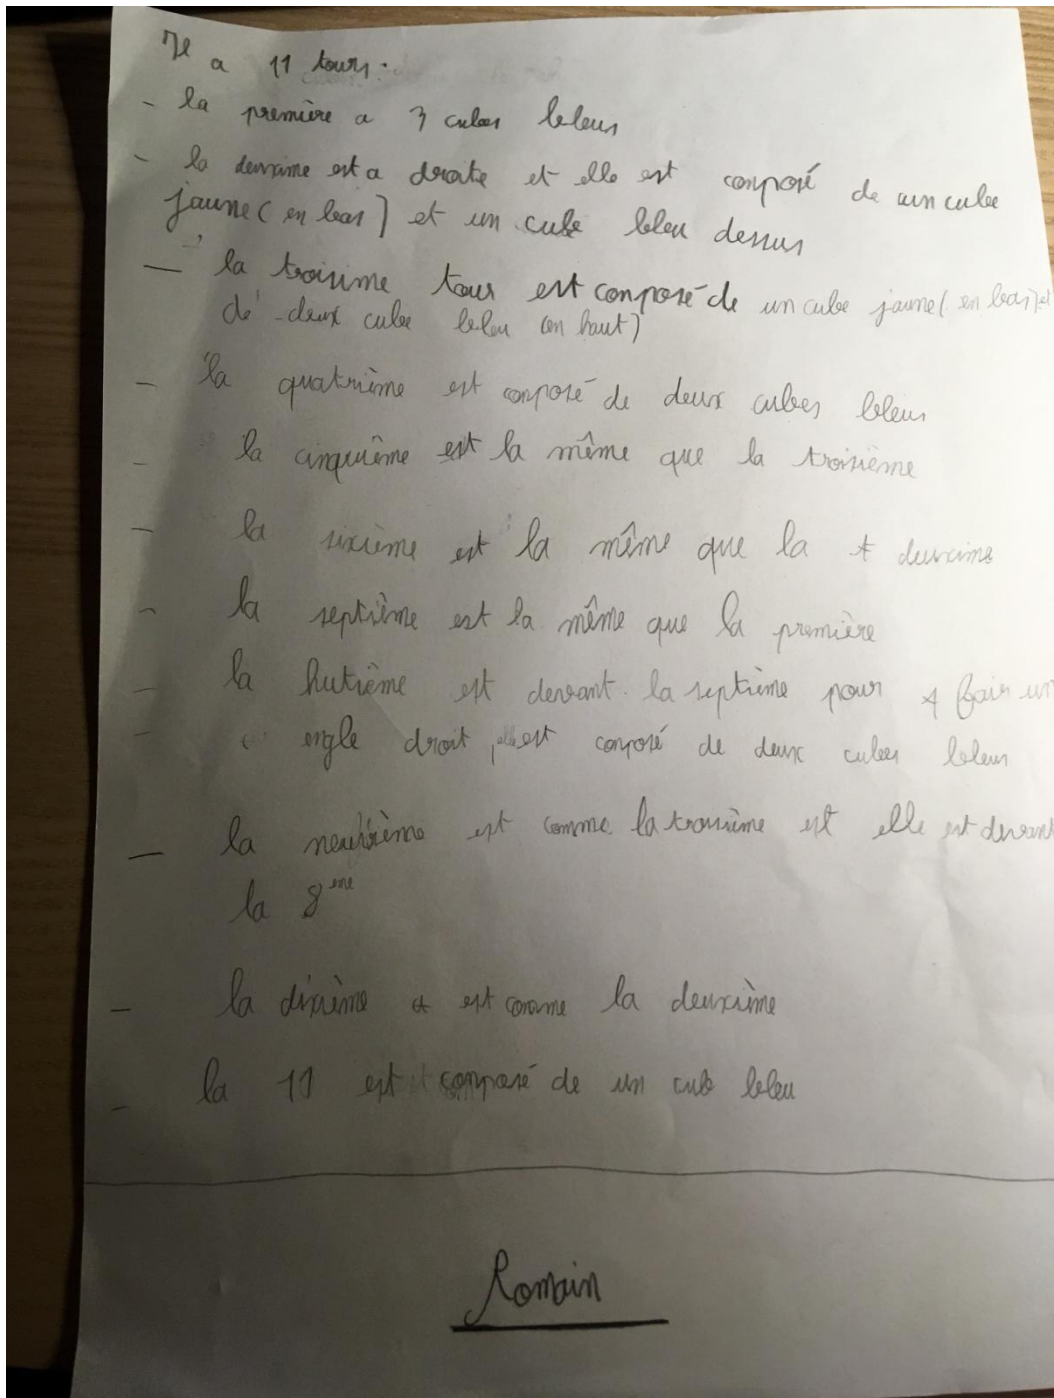 Il a 11 tours.
- la première a 3 cubes bleus
- la deuxime est a droite et elle est composé de un cube
jaune (en bas) et un cube bleu dessus
- la troisime tour est composé de un cube jaune (en bas) et
de deux cube bleu (en haut)
- la quatrième est composé de deux cubes bleus
- la cinquième est la même que la troisième
- la sixième est la même que la deuxime
- la septième est la même que la première
- la hutième est devant la septième pour fair un
- engle droit, elle est composé de deux cubes bleus
- la neuvième est comme la troisième et elle est devant
la 8ème
- la dixième est comme la deuxième
- la 11 est composé de un cube bleu
Romain